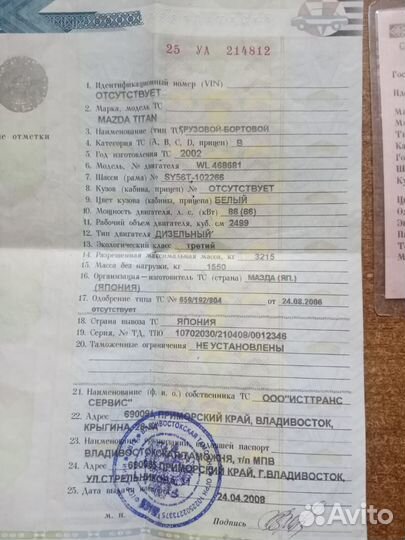 25 УА 214812
1. Идентификационный номер (VIN)
ОТСУТСТВУЕТ
2. Марка, модель ТС
MAZDA TITAN
3. Наименование (тип ТС) ГРУЗОВОЙ-БОРТОВОЙ
ые отметки
4. Категория ТС (А, В, С, D, прицеп) B
5. Год изготовления ТС 2002
6. Модель, № двигателя WL 468681
7. Шасси (рама) № SY56T-102266
8. Кузов (кабина, прицеп) № ОТСУТСТВУЕТ
9. Цвет кузова (кабины, прицепа) БЕЛЫЙ
10. Мощность двигателя, л. с. (кВт) 88 (66)
11. Рабочий объем двигателя, куб. см 2499
12. Тип двигателя ДИЗЕЛЬНЫЙ
13. Экологический класс третий
14. Разрешенная максимальная масса, кг 3215
15. Масса без нагрузки, кг 1550
16. Организация-изготовитель ТС (страна) МАЗДА (ЯП.)
(ЯПОНИЯ)
17. Одобрение типа ТС № 659/192/804 от 24.08.2006
отсутствует
18. Страна вывоза ТС ЯПОНИЯ
19. Серия, № ТД, ТПО 10702030/210408/0012346
20. Таможенные ограничения НЕ УСТАНОВЛЕНЫ
21. Наименование (ф. и. о.) собственника ТС ООО"ИСТТРАНС
СЕРВИС"
22. Адрес 690091, ПРИМОРСКИЙ КРАЙ, ВЛАДИВОСТОК,
КРЫГИНА
23. Наименование организации, выдавшей паспорт
ВЛАДИВОСТОКСКАЯ ТАМОЖНЯ, т/п МПВ
24. Адрес ПРИМОРСКИЙ КРАЙ, Г.ВЛАДИВОСТОК,
УЛ.СТРЕЛЬНИКОВА
25. Дата выдачи паспорта 24.04.2008
м. п.
Подпись
Avito